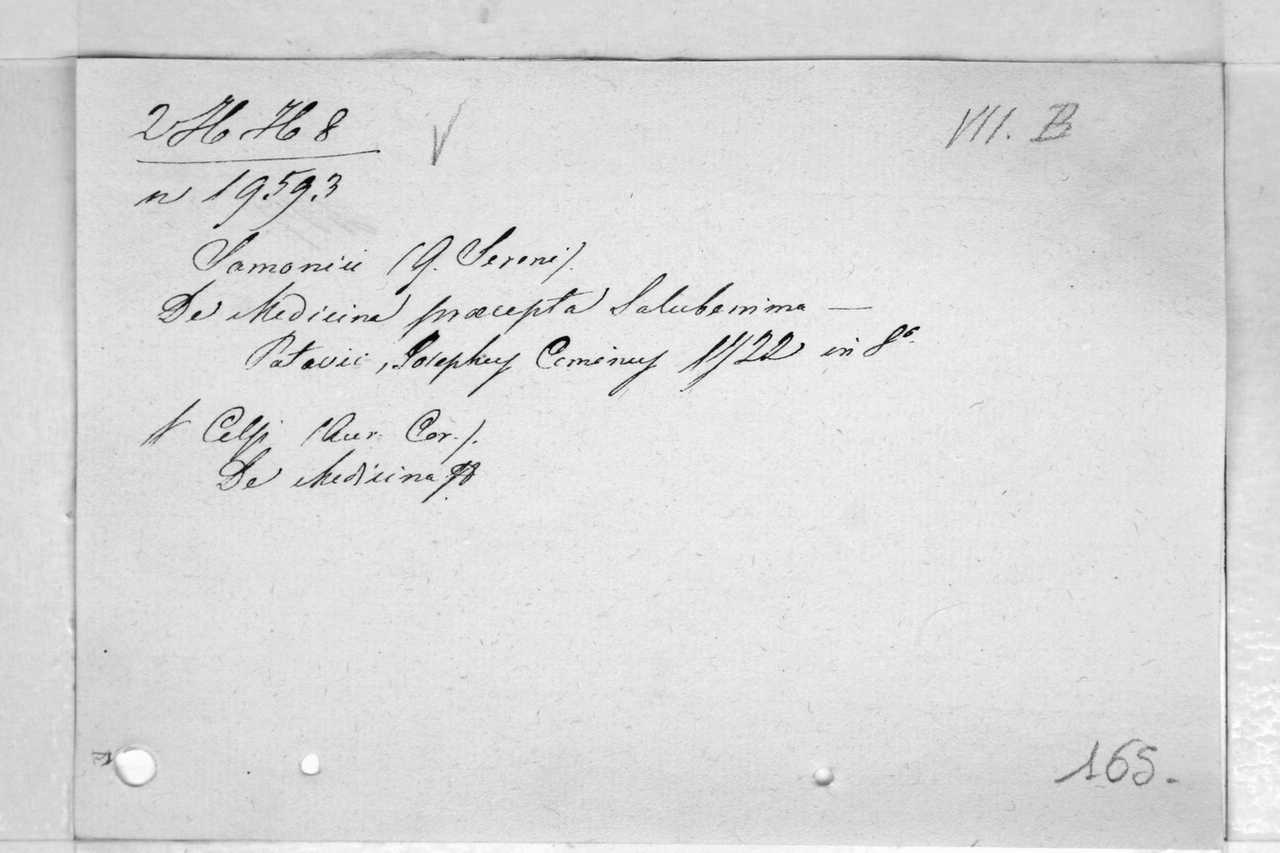 2 H H 8 VII. B
n 19593
Samonici (Q. Sereni).
De Medicina præcepta Saluberrima —
Patavii, Josephus Cominus 1722 in 8º.
# Celsi (Aur. Cor.).
De Medicina
165.